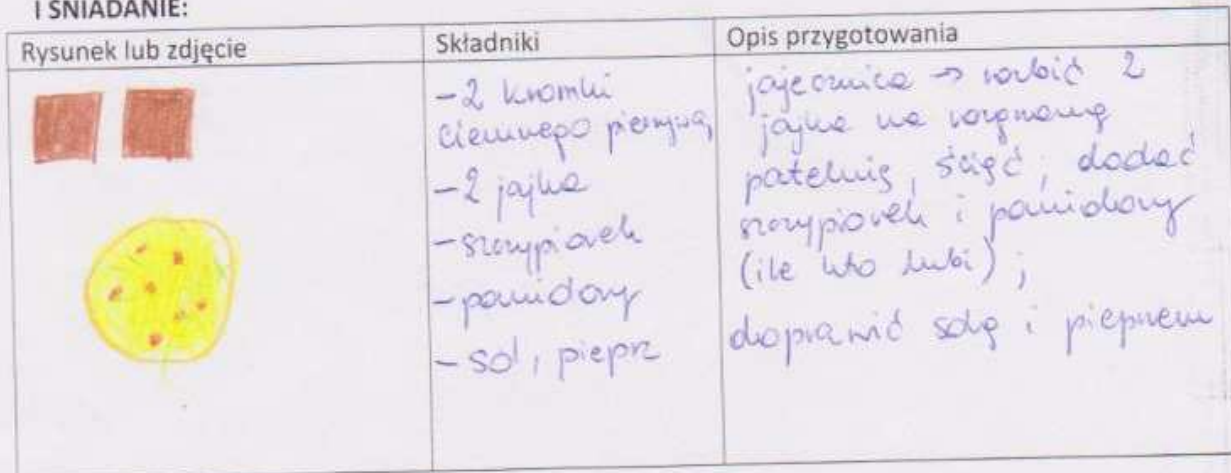 I ŚNIADANIE:
Rysunek lub zdjęcie
Składniki
Opis przygotowania
- 2 kromki
ciemnego pieczywa,
- 2 jajka
- szczypiorek
- pomidory
- sól, pieprz
jajecznica → wbić 2
jajka na rozgrzaną
patelnię, ściąć, dodać
szczypiorek i pomidory
(ile kto lubi);
doprawić solą i pieprzem